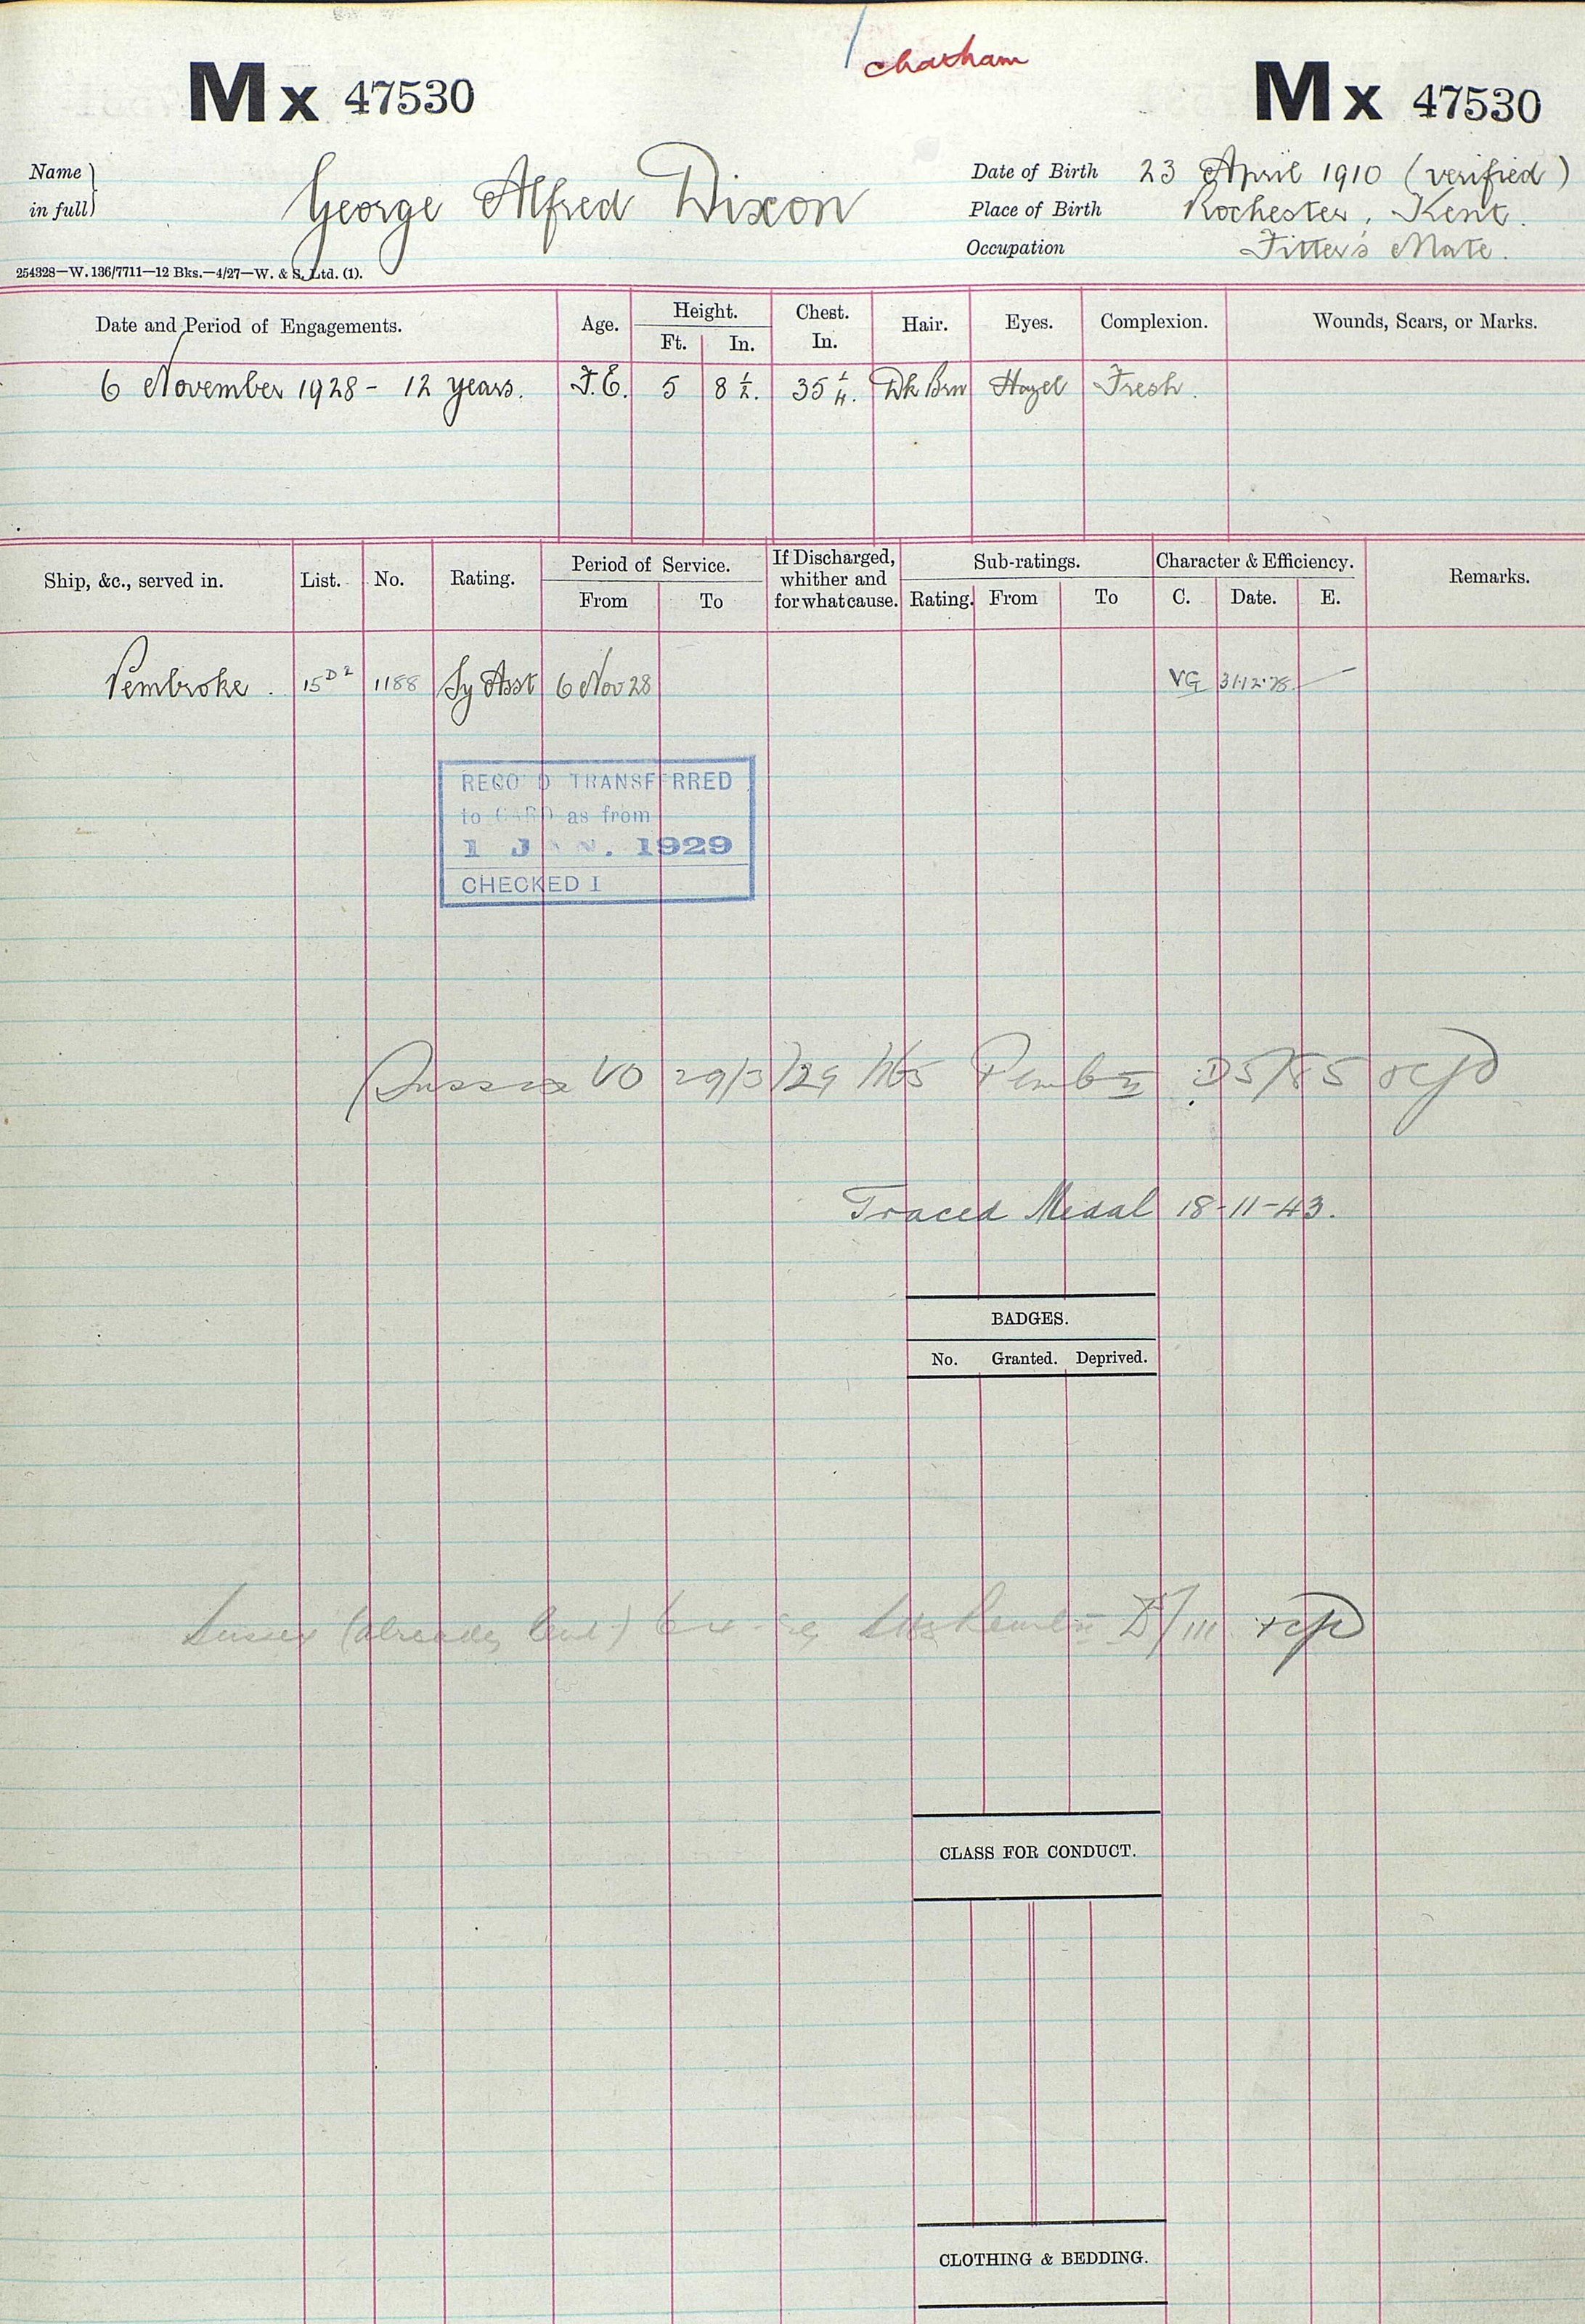 Chatham
Mx 47530
Mx 47530
Name in full
George Alfred Dixon
Date of Birth 23 April 1910 (verified)
Place of Birth Rochester, Kent.
Occupation Fitter's Mate.
254328—W. 136/7711—12 Bks.—4/27—W. & S. Ltd. (1).
Date and Period of Engagements. Age. Height. Ft. In. Chest. In. Hair. Eyes. Complexion. Wounds, Scars, or Marks.
6 November 1928 - 12 years. F.E. 5 8½. 35¼. Dk Brn Hazel Fresh.
Ship, &c., served in. List. No. Rating. Period of Service. From To If Discharged, whither and for what cause. Sub-ratings. Rating. From To Character & Efficiency. C. Date. E. Remarks.
Pembroke. 15D2 1188 Sy Asst 6 Nov 28 VG 31.12.28
RECORD TRANSFERRED
to CARD as from
1 JAN. 1929
CHECKED I
Sussex VO 29/3/29 Pemb II D5/85
Traced Medal 18-11-43.
BADGES.
No. Granted. Deprived.
Sussex (already
CLASS FOR CONDUCT.
CLOTHING & BEDDING.